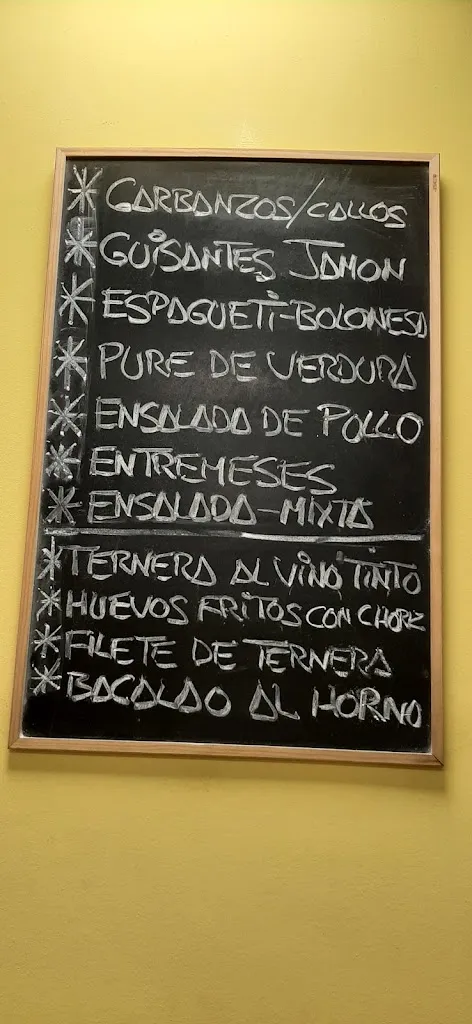 * GARBANZOS/CALLOS
* GUISANTES JAMON
* ESPAGUETI-BOLONESA
* PURE DE VERDURA
* ENSALADA DE POLLO
* ENTREMESES
* ENSALADA-MIXTA
* TERNERA AL VINO TINTO
* HUEVOS FRITOS CON CHORIZ
* FILETE DE TERNERA
* BACALAO AL HORNO